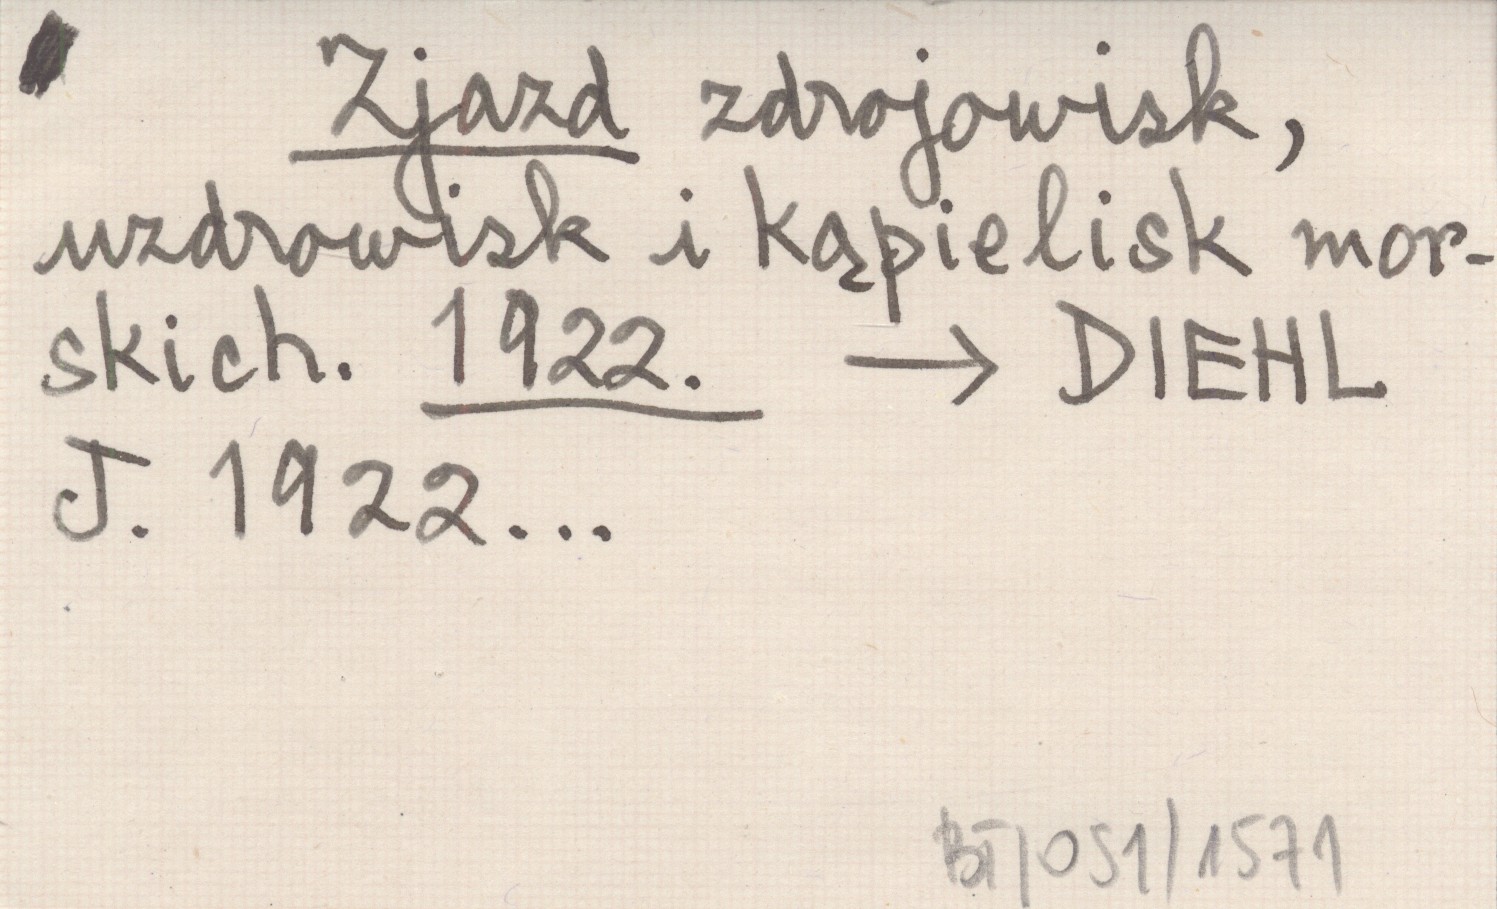 Zjazd zdrojowisk,
uzdrowisk i kąpielisk mor-
skich. 1922. → DIEHL
J. 1922...
BT/OS1/1571